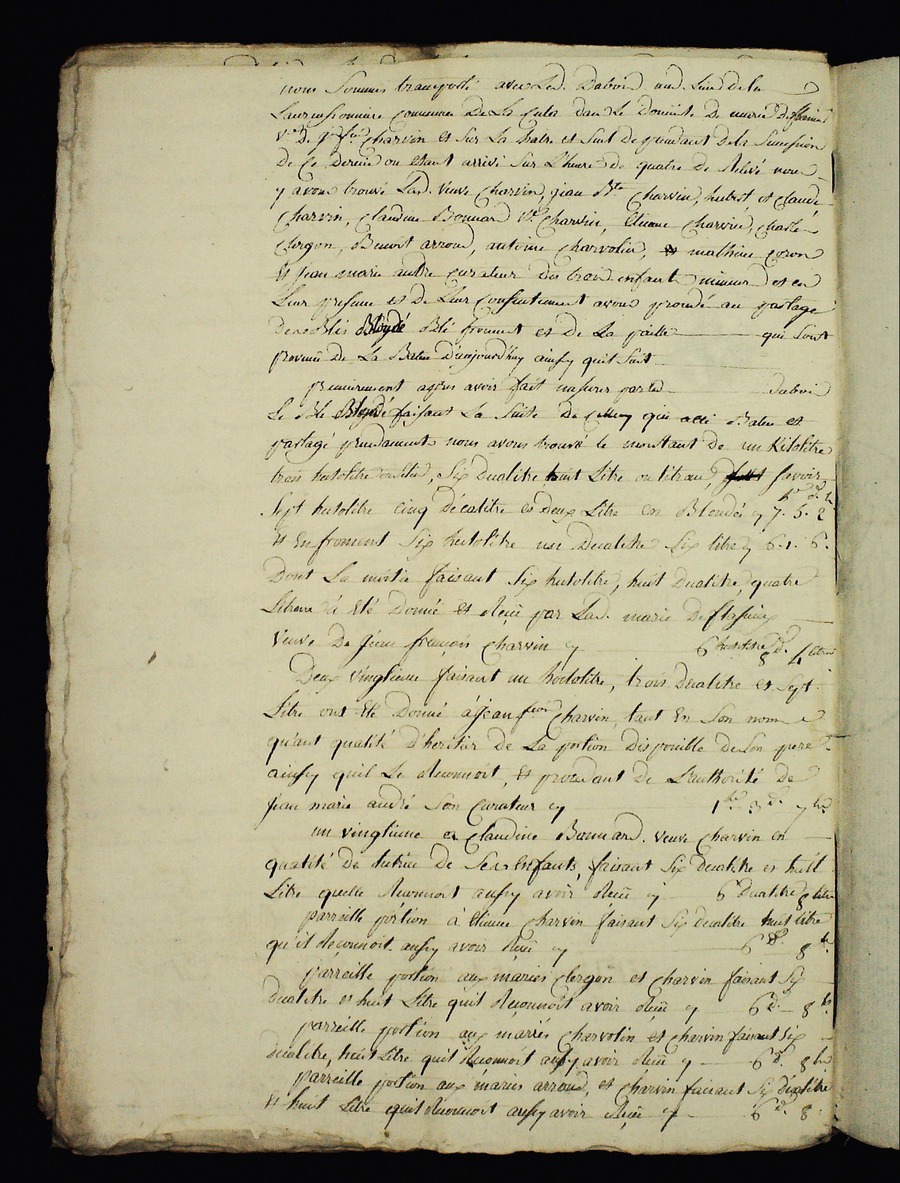 nous sommes transporté avec led. Daboin
commune De Les dans Le Domicile De marie Deflassieux
ve D. Charvin et sur La hatre et suel dependant dela succession
De Ce Dernier ou etant arrivé sur L'heure de quatre De Relevé nous
y avons trouvé Lad. veuve Charvin, jean Bte Charvin, hubert et Claude
Charvin, Claudine Bonnard ve Charvin, Etienne Charvin, Charle
Clergon, Benoit arnoud, antoine Charvolin, mathieu
Et jean marie andre curateur des trois enfants mineurs et en
Leur presence et De Leur Consentement avons procedé au partage
Bloydé Blé froment et De La paille qui sont
provenu De La Batue D'aujourd'huy ainsy quil suit
premierement apres avoir fait mesurer par led daboin
Le Blé Bloydé faisant La suite De Celluy qui a été Batu et
partagé precedament nous avons trouvé le montant de un Kilolitre
trois hectolitre, six decalitre huit Litre, savoir
Sept hectolitre cinq Décalitre et deux Litre en Blondée cy 7. 5. 2
Et En froment six hectolitre un Decalitre six litre cy 6. 1. 6.
Dont La moitié faisant six hectolitre, huit decalitre, quatre
Litre à été Donné et reçu par Lad. marie Deflassieux
veuve De jean françois Charvin cy 6 hectolitre 8 d. 4 litres
Deux vingtieme faisant un hectolitre, trois Decalitre et sept
Litre ont été Donné à jean Charvin, tant en son nom
qu'ant qualité D'heritier de La portion disponible de son pere
ainsy quil Le Reconnoit, et procedant De L'authorité de
jean marie andré son Curateur cy 1 he 3 d. 7 lit
un vingtieme a Claudine Bonnard veuve Charvin en
qualité de tutrice de ses Enfants, faisant six decalitre et huit
Litre quelle Reconnoit aussy avoir Reçu cy 6 decalitre 8 litre
parreille portion à Etienne Charvin faisant six decalitre huit litre
qu'il Reconnoit aussy avoir Reçu cy 6 d. 8 l.
parreille portion aux mariés Clergon et Charvin faisant six
decalitre et huit Litre quil Reconnoit avoir Reçu cy 6 d. 8 l
parreille portion aux mariés Charvolin et charvin faisant six
decalitre, huit Litre quil Reconnoit aussy avoir Reçu cy 6 d. 8 l
parreille portion aux mariés arnoud, et Charvin faisant six décalitre
Et huit Litre quil Reconnoit aussy avoir Reçu cy 6 d. 8